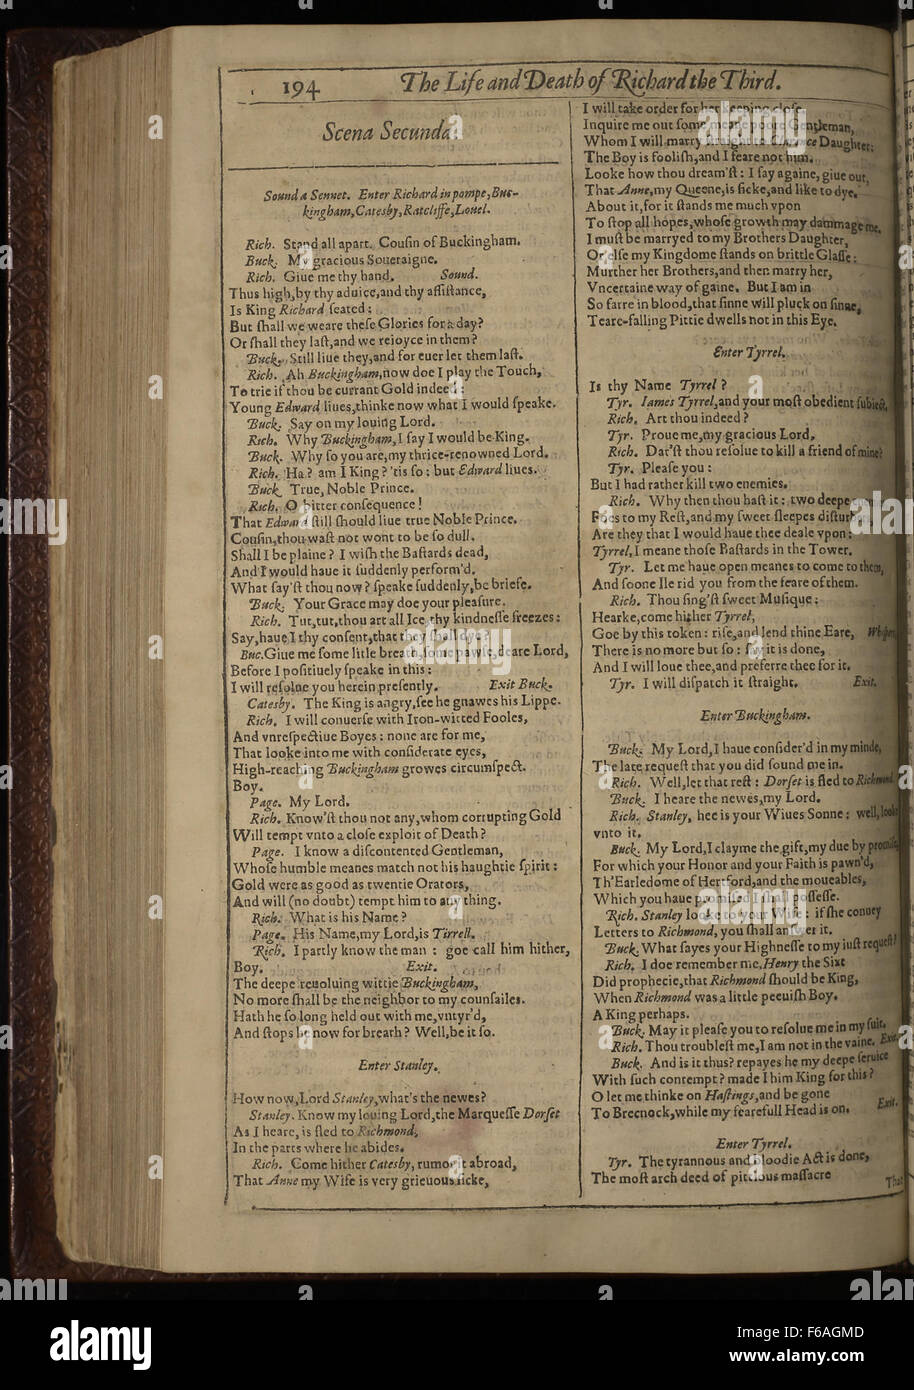 194 The Life and Death of Richard the Third.
Scena Secunda.
Sound a Sennet. Enter Richard in pompe, Buc-
kingham, Catesby, Ratcliffe, Louel.
Rich. Stand all apart. Cousin of Buckingham.
Buck. My gracious Soueraigne.
Rich. Giue me thy hand. Sound.
Thus high, by thy aduice, and thy aſſiſtance,
Is King Richard ſeated:
But ſhall we weare theſe Glories for a day?
Or ſhall they laſt, and we reioyce in them?
Buck. Still liue they, and for euer let them laſt.
Rich. Ah Buckingham, now doe I play the Touch,
To trie if thou be currant Gold indeed:
Young Edward liues, thinke now what I would ſpeake.
Buck. Say on my louing Lord.
Rich. Why Buckingham, I ſay I would be King.
Buck. Why ſo you are, my thrice-renowned Lord.
Rich. Ha? am I King? 'tis ſo: but Edward liues.
Buck. True, Noble Prince.
Rich. O bitter conſequence!
That Edward ſtill ſhould liue true Noble Prince.
Couſin, thou waſt not wont to be ſo dull.
Shall I be plaine? I wiſh the Baſtards dead,
And I would haue it ſuddenly perform'd.
What ſay'ſt thou now? ſpeake ſuddenly, be briefe.
Buck. Your Grace may doe your pleaſure.
Rich. Tut, tut, thou art all Ice, thy kindneſſe freezes:
Say, haue I thy conſent, that they ſhall dye?
Buc. Giue me ſome little breath, ſome pawſe, deare Lord,
Before I poſitiuely ſpeake in this:
I will reſolue you herein preſently. Exit Buck.
Catesby. The King is angry, ſee he gnawes his Lippe.
Rich. I will conuerſe with Iron-witted Fooles,
And vnreſpectiue Boyes: none are for me,
That looke into me with conſiderate eyes,
High-reaching Buckingham growes circumſpect.
Boy.
Page. My Lord.
Rich. Know'ſt thou not any, whom corrupting Gold
Will tempt vnto a cloſe exploit of Death?
Page. I know a diſcontented Gentleman,
Whoſe humble meanes match not his haughtie ſpirit:
Gold were as good as twentie Orators,
And will (no doubt) tempt him to any thing.
Rich. What is his Name?
Page. His Name, my Lord, is Tirrell.
Rich. I partly know the man: goe call him hither,
Boy. Exit.
The deepe reuoluing wittie Buckingham,
No more ſhall be the neighbor to my counſailes.
Hath he ſo long held out with me, vntyr'd,
And ſtops he now for breath? Well, be it ſo.
Enter Stanley.
How now, Lord Stanley, what's the newes?
Stanley. Know my louing Lord, the Marqueſſe Dorſet
As I heare, is fled to Richmond,
In the parts where he abides.
Rich. Come hither Catesby, rumor it abroad,
That Anne my Wife is very grieuous ſicke,
I will take order for her keeping cloſe.
Inquire me out ſome meane poore Gentleman,
Whom I will marry ſtraight to Clarence Daughter:
The Boy is fooliſh, and I feare not him.
Looke how thou dream'ſt: I ſay againe, giue out,
That Anne, my Queene, is ſicke, and like to dye.
About it, for it ſtands me much vpon
To ſtop all hopes, whoſe growth may dammage me.
I muſt be marryed to my Brothers Daughter,
Or elſe my Kingdome ſtands on brittle Glaſſe:
Murther her Brothers, and then marry her,
Vncertaine way of gaine. But I am in
So farre in blood, that ſinne will pluck on ſinne,
Teare-falling Pittie dwells not in this Eye.
Enter Tyrrel.
Is thy Name Tyrrel?
Tyr. Iames Tyrrel, and your moſt obedient ſubiect.
Rich. Art thou indeed?
Tyr. Proue me, my gracious Lord.
Rich. Dar'ſt thou reſolue to kill a friend of mine?
Tyr. Pleaſe you:
But I had rather kill two enemies.
Rich. Why then thou haſt it: two deepe
Foes to my Reſt, and my ſweet ſleepes diſturbers,
Are they that I would haue thee deale vpon:
Tyrrel, I meane thoſe Baſtards in the Tower.
Tyr. Let me haue open meanes to come to them,
And ſoone Ile rid you from the feare of them.
Rich. Thou ſing'ſt ſweet Muſique:
Hearke, come hither Tyrrel,
Goe by this token: riſe, and lend thine Eare, Whiſpers.
There is no more but ſo: ſay it is done,
And I will loue thee, and preferre thee for it.
Tyr. I will diſpatch it ſtraight. Exit.
Enter Buckingham.
Buck. My Lord, I haue conſider'd in my minde,
The late requeſt that you did ſound me in.
Rich. Well, let that reſt: Dorſet is fled to Richmond.
Buck. I heare the newes, my Lord.
Rich. Stanley, hee is your Wiues Sonne: well, looke
vnto it.
Buck. My Lord, I clayme the gift, my due by promiſe,
For which your Honor and your Faith is pawn'd,
Th'Earledome of Hertford, and the moueables,
Which you haue promiſed I ſhall poſſeſſe.
Rich. Stanley looke to your Wife: if ſhe conuey
Letters to Richmond, you ſhall anſwer it.
Buck. What ſayes your Highneſſe to my iuſt requeſt?
Rich. I doe remember me, Henry the Sixt
Did prophecie, that Richmond ſhould be King,
When Richmond was a little peeuiſh Boy.
A King perhaps.
Buck. May it pleaſe you to reſolue me in my ſuit.
Rich. Thou troubleſt me, I am not in the vaine. Exit.
Buck. And is it thus? repayes he my deepe ſeruice
With ſuch contempt? made I him King for this?
O let me thinke on Haſtings, and be gone
To Brecnock, while my fearefull Head is on. Exit.
Enter Tyrrel.
Tyr. The tyrannous and bloodie Act is done,
The moſt arch deed of pittious maſſacre
That
alamy
alamy
alamy
alamy
Image ID: F6AGMD
www.alamy.com